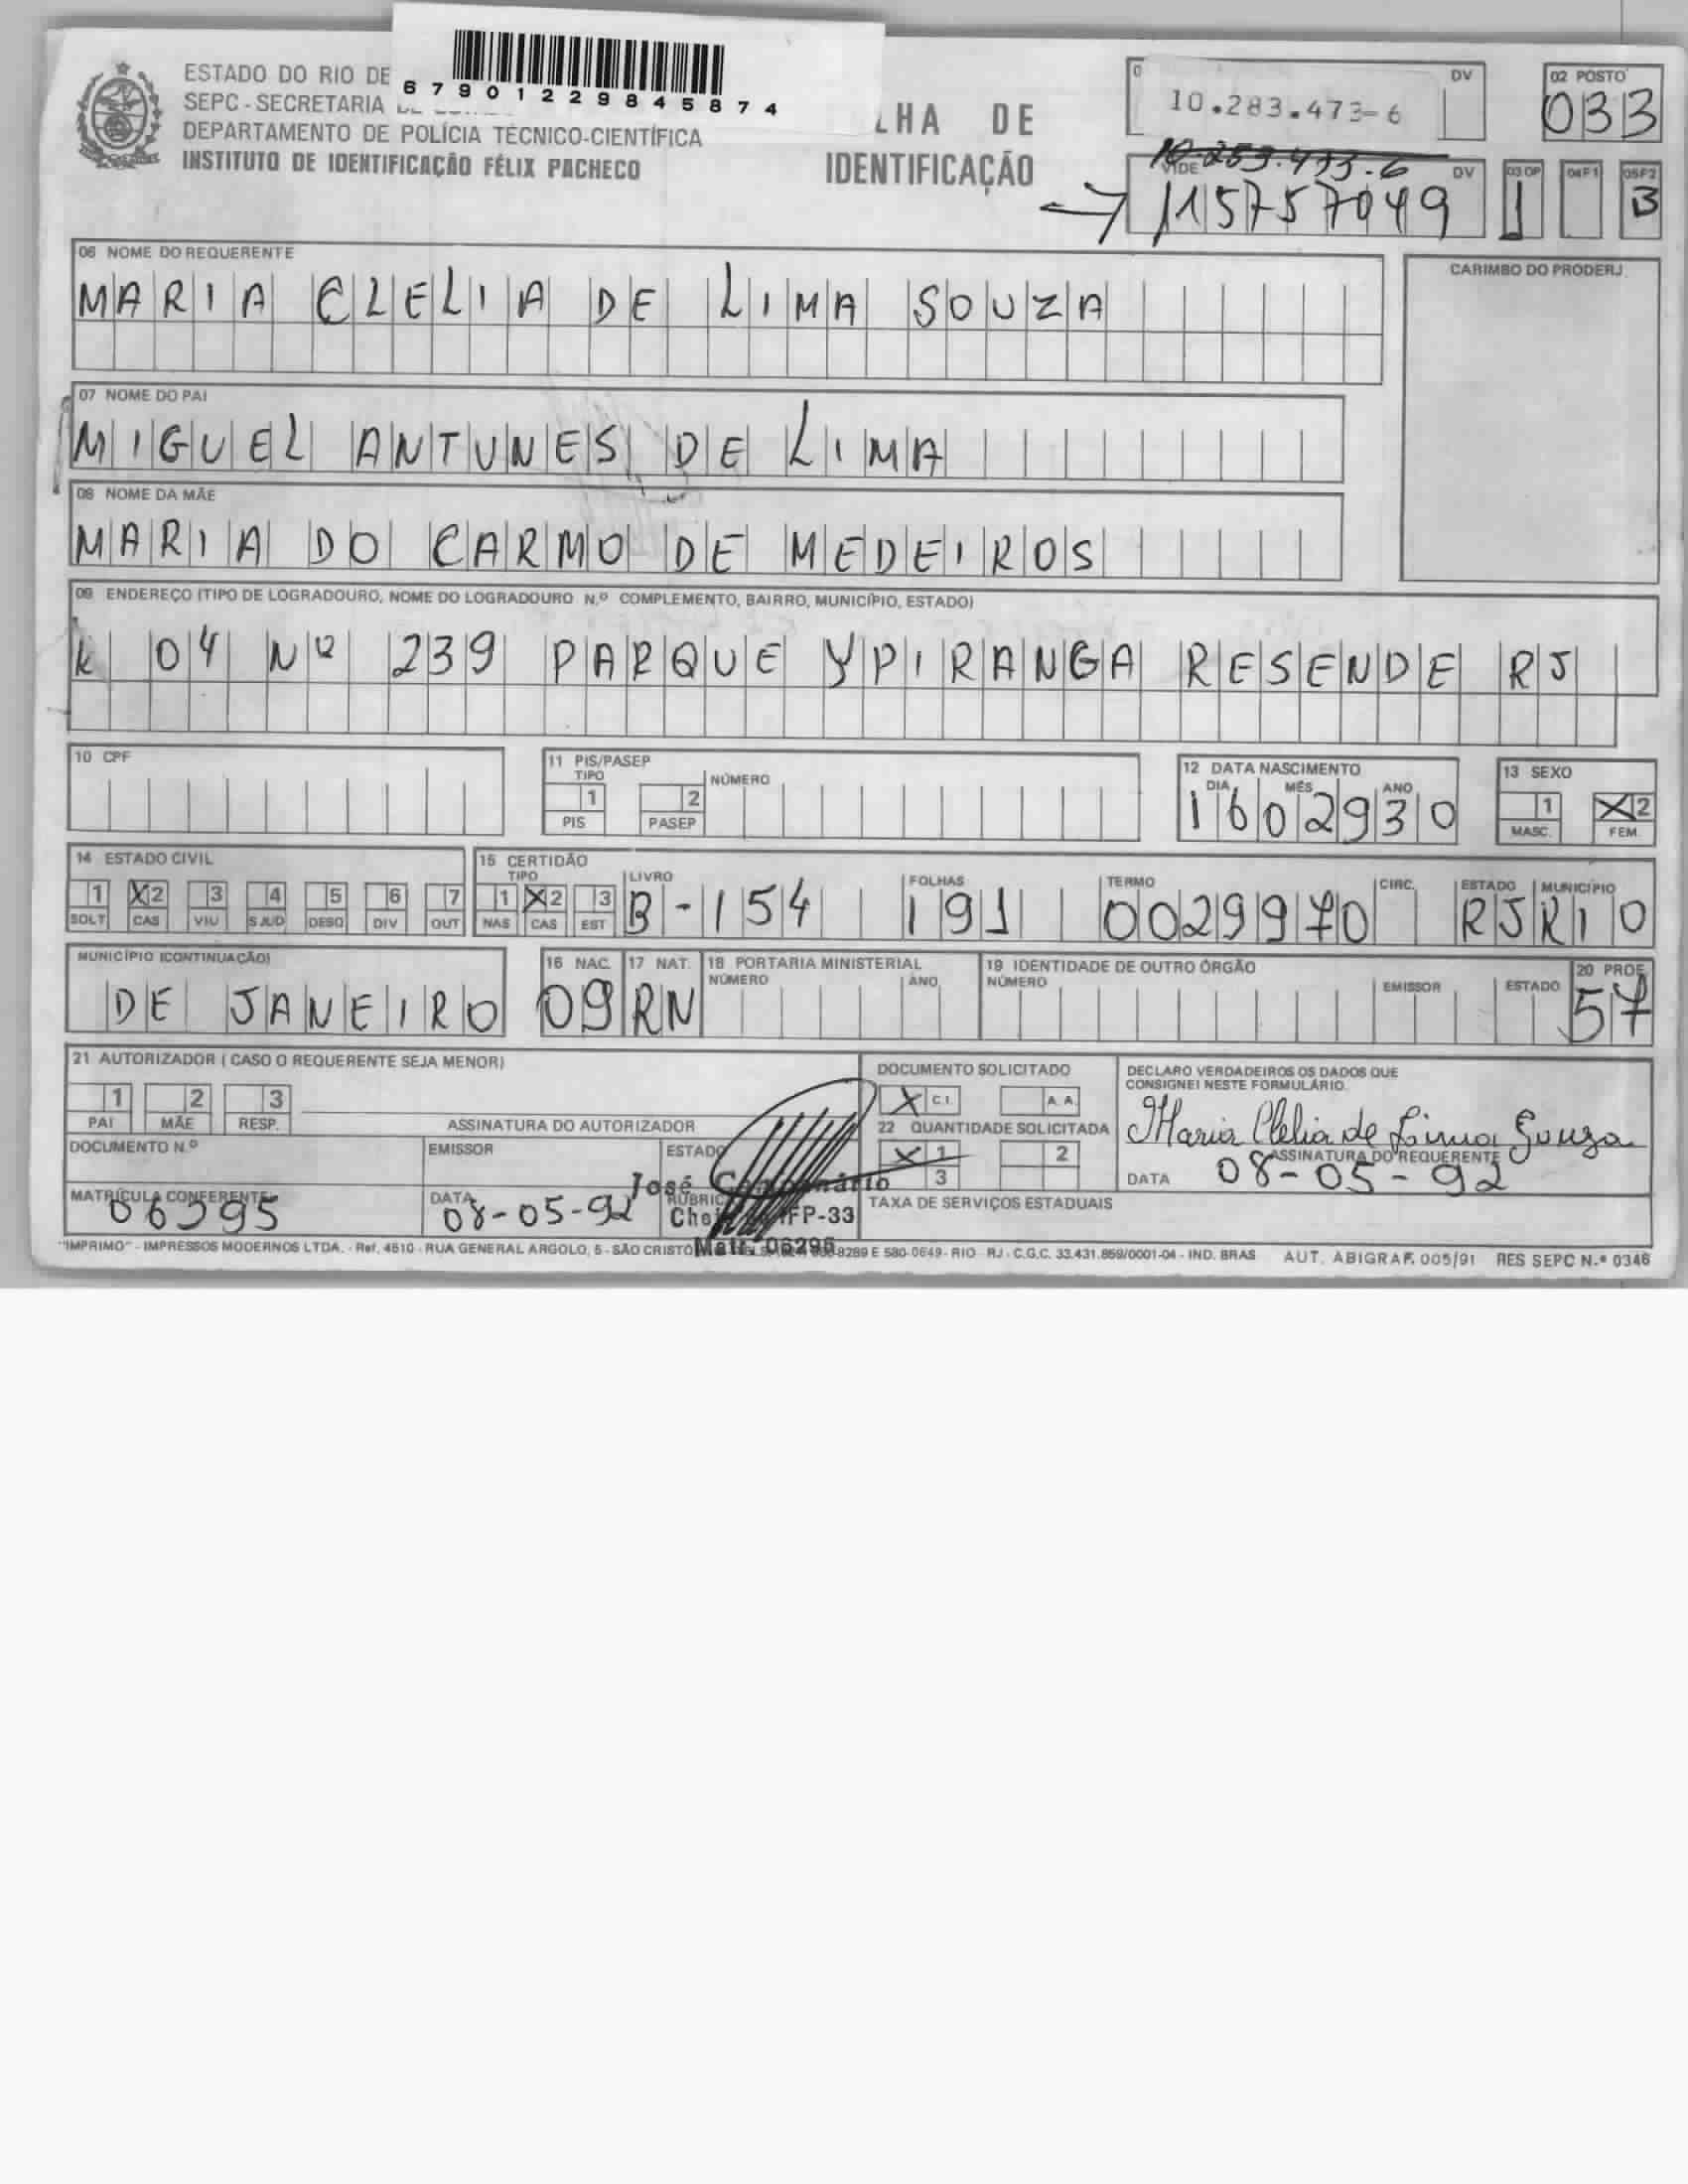 67901229845874
ESTADO DO RIO DE
SEPC - SECRETARIA
DEPARTAMENTO DE POLÍCIA TÉCNICO-CIENTÍFICA
INSTITUTO DE IDENTIFICAÇÃO FÉLIX PACHECO
LHA DE
IDENTIFICAÇÃO
DV
10.283.473-6
02 POSTO
033
VIDE
DV
115757049
03 OP
1
04 F1
05 F2
3
06 NOME DO REQUERENTE
MARIA CLELIA DE LIMA SOUZA
CARIMBO DO PRODERJ
07 NOME DO PAI
MIGUEL ANTUNES DE LIMA
08 NOME DA MÃE
MARIA DO CARMO DE MEDEIROS
09 ENDEREÇO (TIPO DE LOGRADOURO, NOME DO LOGRADOURO N.º COMPLEMENTO, BAIRRO, MUNICÍPIO, ESTADO)
k 04 Nº 239 PARQUE YPIRANGA RESENDE RJ
10 CPF
11 PIS/PASEP
TIPO
NÚMERO
1 2
PIS PASEP
12 DATA NASCIMENTO
DIA MÊS ANO
1602930
13 SEXO
1 X2
MASC. FEM.
14 ESTADO CIVIL
1 X2 3 4 5 6 7
SOLT CAS VIU SJUD DESQ DIV OUT
15 CERTIDÃO
TIPO
1 X2 3
NAS CAS EST
LIVRO
B-154
FOLHAS
191
TERMO
0029970
CIRC.
ESTADO
RJ
MUNICÍPIO
RIO
MUNICÍPIO (CONTINUAÇÃO)
DE JANEIRO
16 NAC.
09
17 NAT.
RN
18 PORTARIA MINISTERIAL
NÚMERO ANO
19 IDENTIDADE DE OUTRO ÓRGÃO
NÚMERO EMISSOR ESTADO
20 PROF.
57
21 AUTORIZADOR (CASO O REQUERENTE SEJA MENOR)
1 2 3
PAI MÃE RESP.
ASSINATURA DO AUTORIZADOR
DOCUMENTO N.º
EMISSOR
ESTADO
MATRÍCULA CONFERENTE
DATA
08-05-92
José
FP-33
Matr. 06295
DOCUMENTO SOLICITADO
X C.I. A.A.
22 QUANTIDADE SOLICITADA
X 1 2
3
TAXA DE SERVIÇOS ESTADUAIS
DECLARO VERDADEIROS OS DADOS QUE
CONSIGNEI NESTE FORMULÁRIO.
Maria Clelia de Lima Souza
ASSINATURA DO REQUERENTE
DATA 08-05-92
"IMPRIMO" - IMPRESSOS MODERNOS LTDA. - Ref. 4510 - RUA GENERAL ARGOLO, 5 - SÃO CRISTÓ 8289 E 580-0649 - RIO - RJ - C.G.C. 33.431.859/0001-04 - IND. BRAS AUT. ABIGRAF. 005/91 RES SEPC N.º 0346